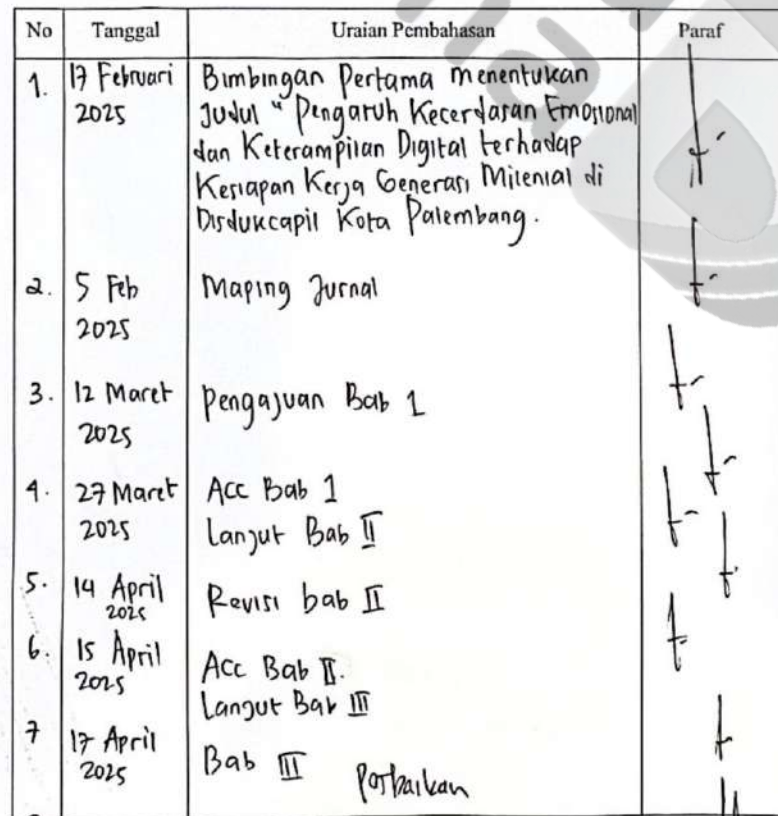 No Tanggal Uraian Pembahasan Paraf
1. 17 Februari Bimbingan Pertama menentukan
2025 Judul " Pengaruh Kecerdasan Emosional
dan Keterampilan Digital terhadap
Kesiapan Kerja Generasi Milenial di
Disdukcapil Kota Palembang.
2. 5 Feb Maping Jurnal
2025
3. 12 Maret Pengajuan Bab 1
2025
4. 27 Maret Acc Bab 1
2025 Lanjut Bab II
5. 14 April Revisi bab II
2025
6. 15 April Acc Bab II.
2025 Lanjut Bab III
7 17 April Bab III Perbaikan
2025